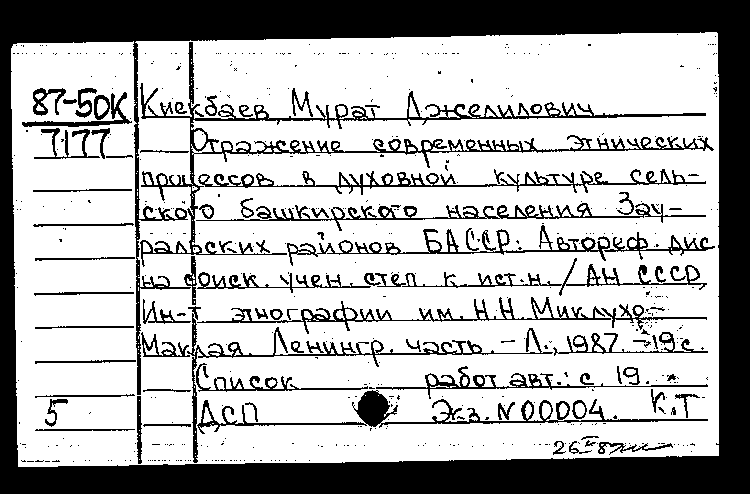 87-50К Киекбаев, Мурат Джелилович
7177 Отражение современных этнических
процессов в духовной культуре сель-
ского башкирского населения Зау-
ральских районов БАССР: Автореф. дис
на соиск. учен. степ. к. ист. н. / АН СССР,
Ин-т этнографии им. Н.Н. Миклухо-
Маклая. Ленингр. часть. - Л., 1987. - 19 с.
Список работ авт.: с. 19.
5 ДСП Экз. N 00004. К.Т